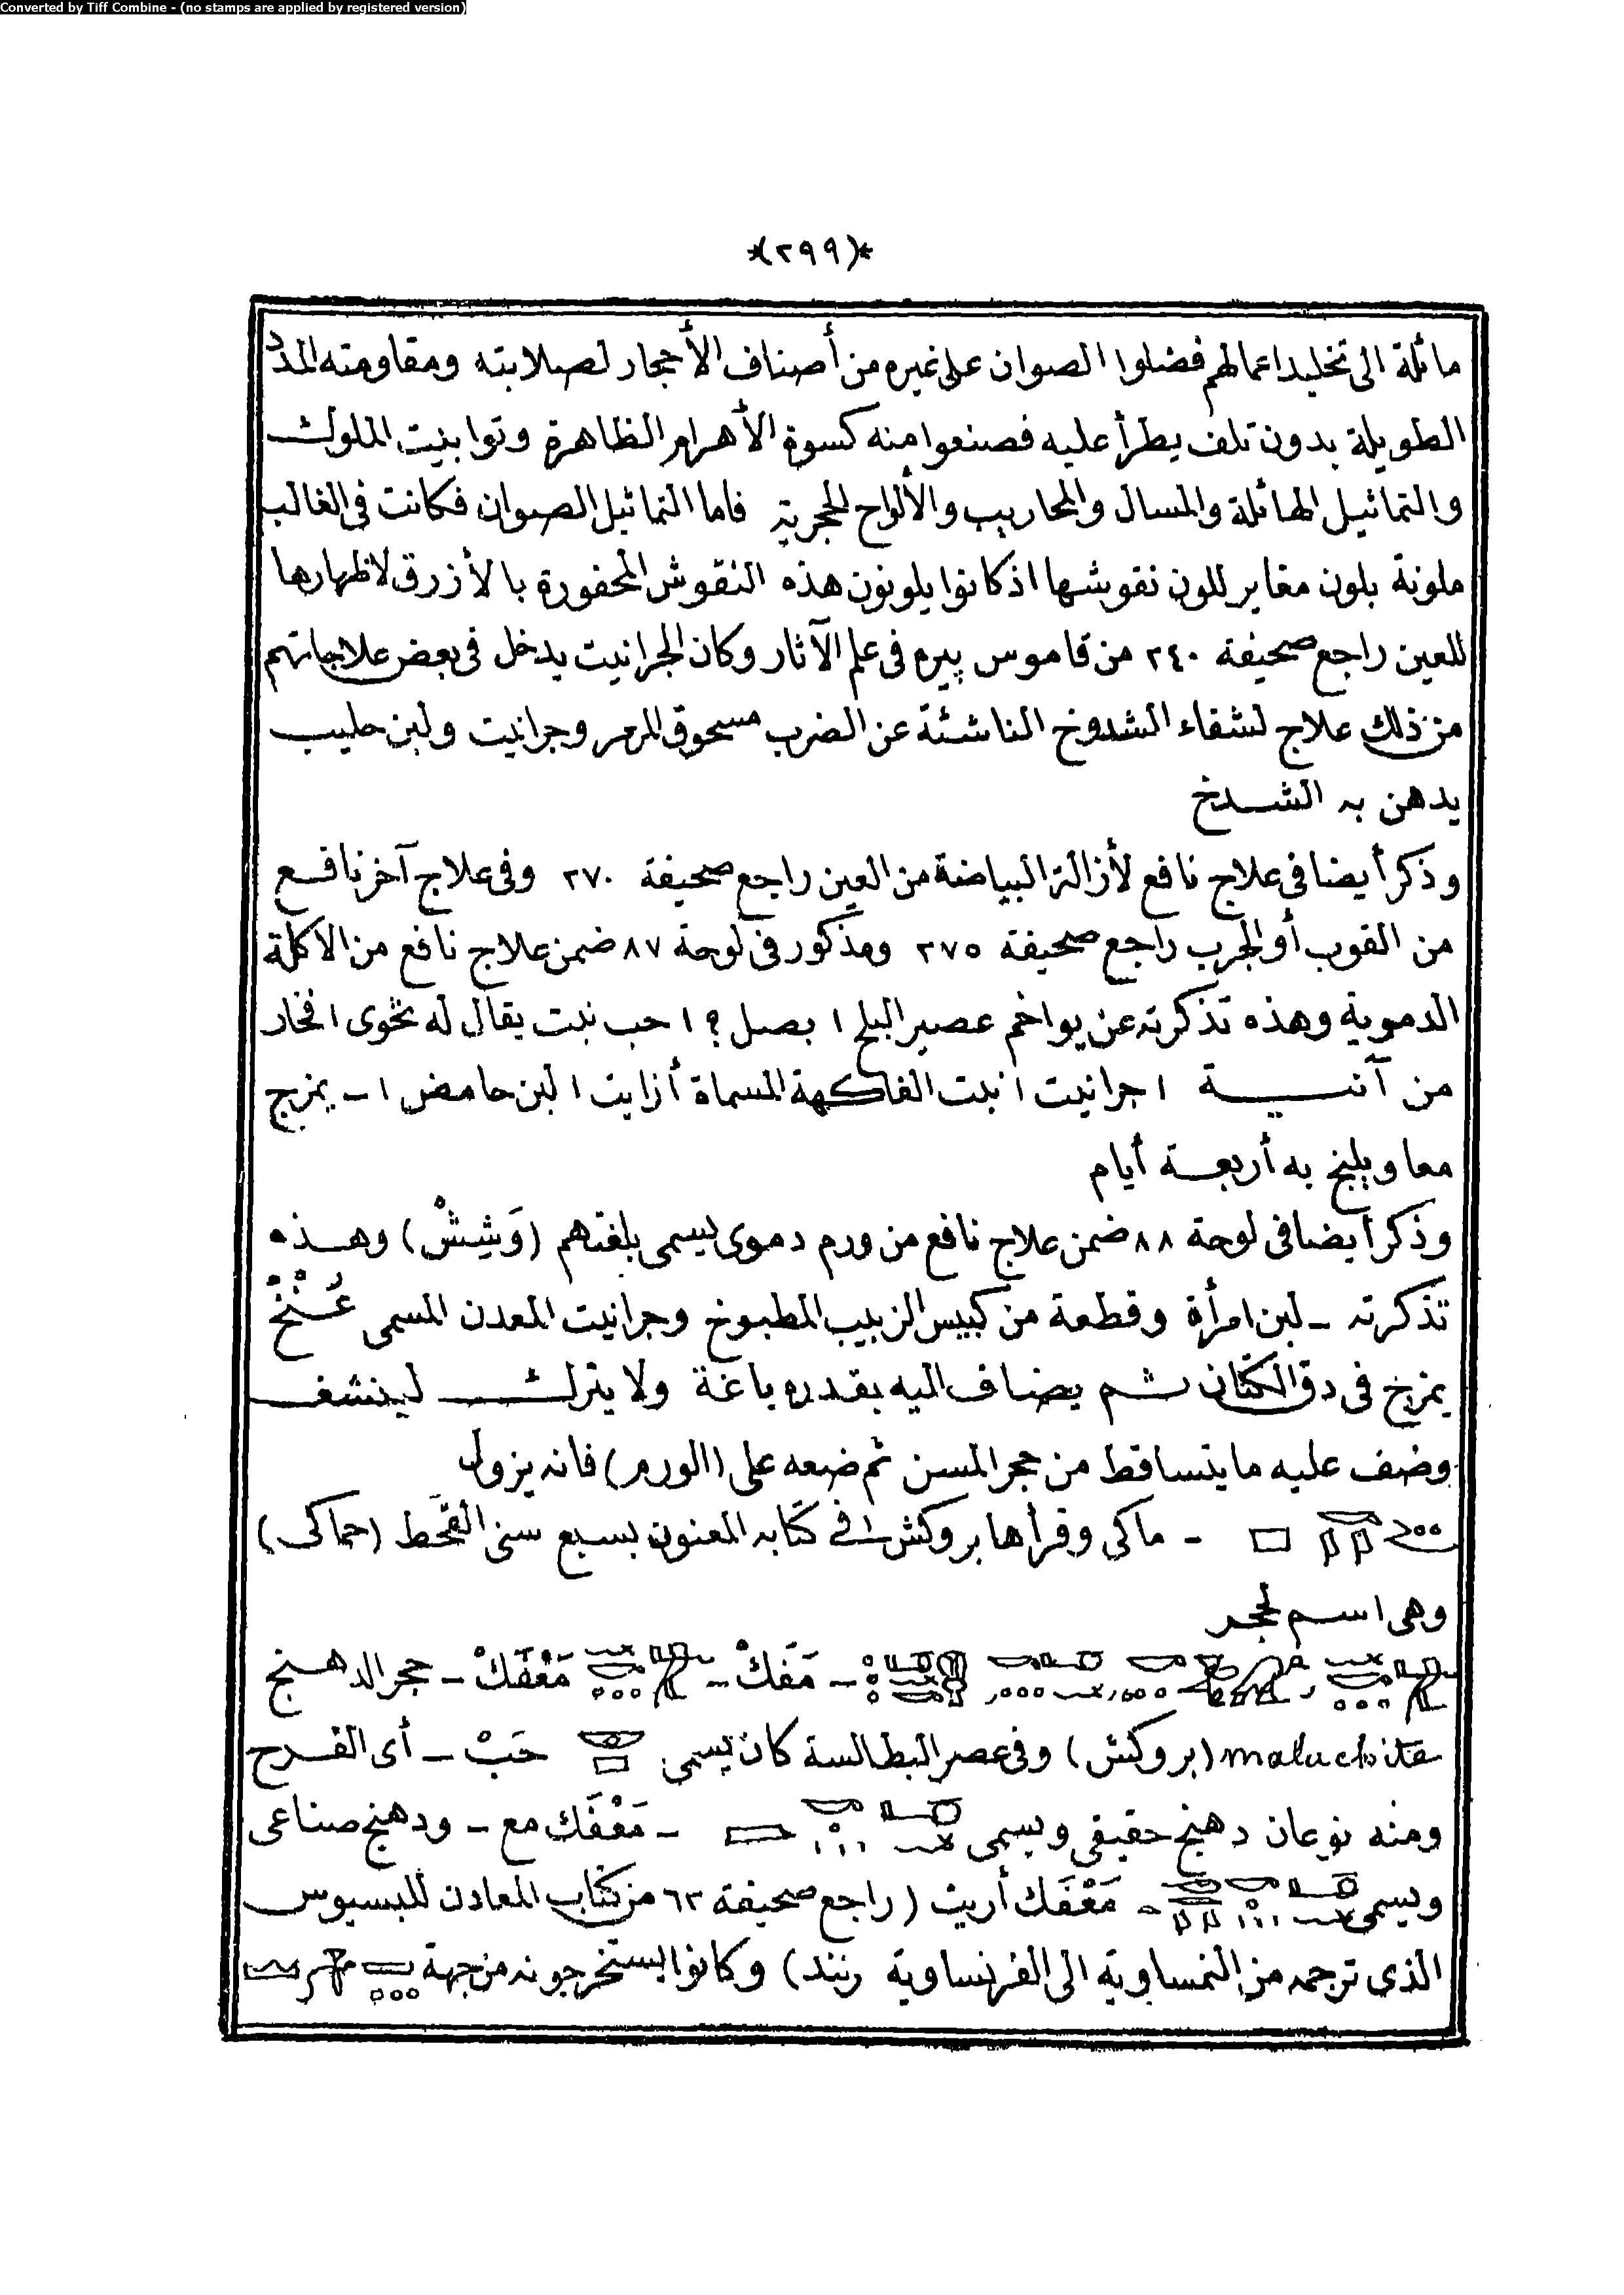 Converted by Tiff Combine - (no stamps are applied by registered version)
*(٢٩٩)*
مائلة الى تخليد اعمالهم فضلوا الصوان على غيره من أصناف الأحجار لصلابته ومقاومته المدد
الطويلة بدون تلف يطرأ عليه فصنعوا منه كسوة الأهرام الظاهرة وتوابيت الملوك
والتماثيل الهائلة والمسال والمحاريب والألواح الحجرية فاما التماثيل الصوان فكانت فى الغالب
ملونة بلون مغاير للون نقوشها اذ كانوا يلونون هذه النقوش المحفورة بالأزرق لاظهارها
للعين راجع صحيفة ٢٤٠ من قاموس پيره فى علم الآثار وكان الجرانيت يدخل فى بعض علاجاتهم
من ذلك علاج لشفاء الشدوخ الناشئة عن الضرب مسحوق المرمر وجرانيت ولبن حليب
يدهن به الشدخ
وذكر أيضا فى علاج نافع لأزالة البياضة من العين راجع صحيفة ٢٧٠ وفى علاج آخر نافع
من القوب أو الجرب راجع صحيفة ٢٧٥ ومذكور فى لوحة ٨٧ ضمن علاج نافع من الاكلة
الدموية وهذه تذكرته عن يواخم عصير البلح ١ بصل ؟ ١ حب نبت يقال له نخوى ١ فخار
من آنية ١ جرانيت ١ نبت الفاكهة المسماة أزايت ١ لبن حامض ١ - يمزج
معا ويلبخ به أربعة أيام
وذكر أيضا فى لوحة ٨٨ ضمن علاج نافع من ورم دموى يسمى بلغتهم (وَشِيشْ) وهذه
تذكرته - لبن امرأة وقطعة من كبيس الزبيب المطبوخ وجرانيت المعدن المسمى عُنْخْ
يمزج فى دق الكتان ثم يضاف اليه بقدره باغة ولا يترك لينشف
وضف عليه ما يتساقط من حجر المسن ثم ضعه على (الورم) فانه يزول
- ماكى وقرأها بروكش فى كتابه المعنون بسبع سنى القحط (حماكى)
وهى اسم لحجر
- مَفَكْ - مَعْفَكْ - حجر الدهنج
malachite (بروكش) وفى عصر البطالسة كان يسمى حَبْ - أى الفرح
ومنه نوعان دهنج حقيقى ويسمى - مَعْفَك مع - ودهنج صناعى
ويسمى - مَعْفَك أريت (راجع صحيفة ٦٣ من كتاب المعادن للبسيوس
الذى ترجمه من النمساوية الى الفرنساوية رنند) وكانوا يستخرجونه من جهة